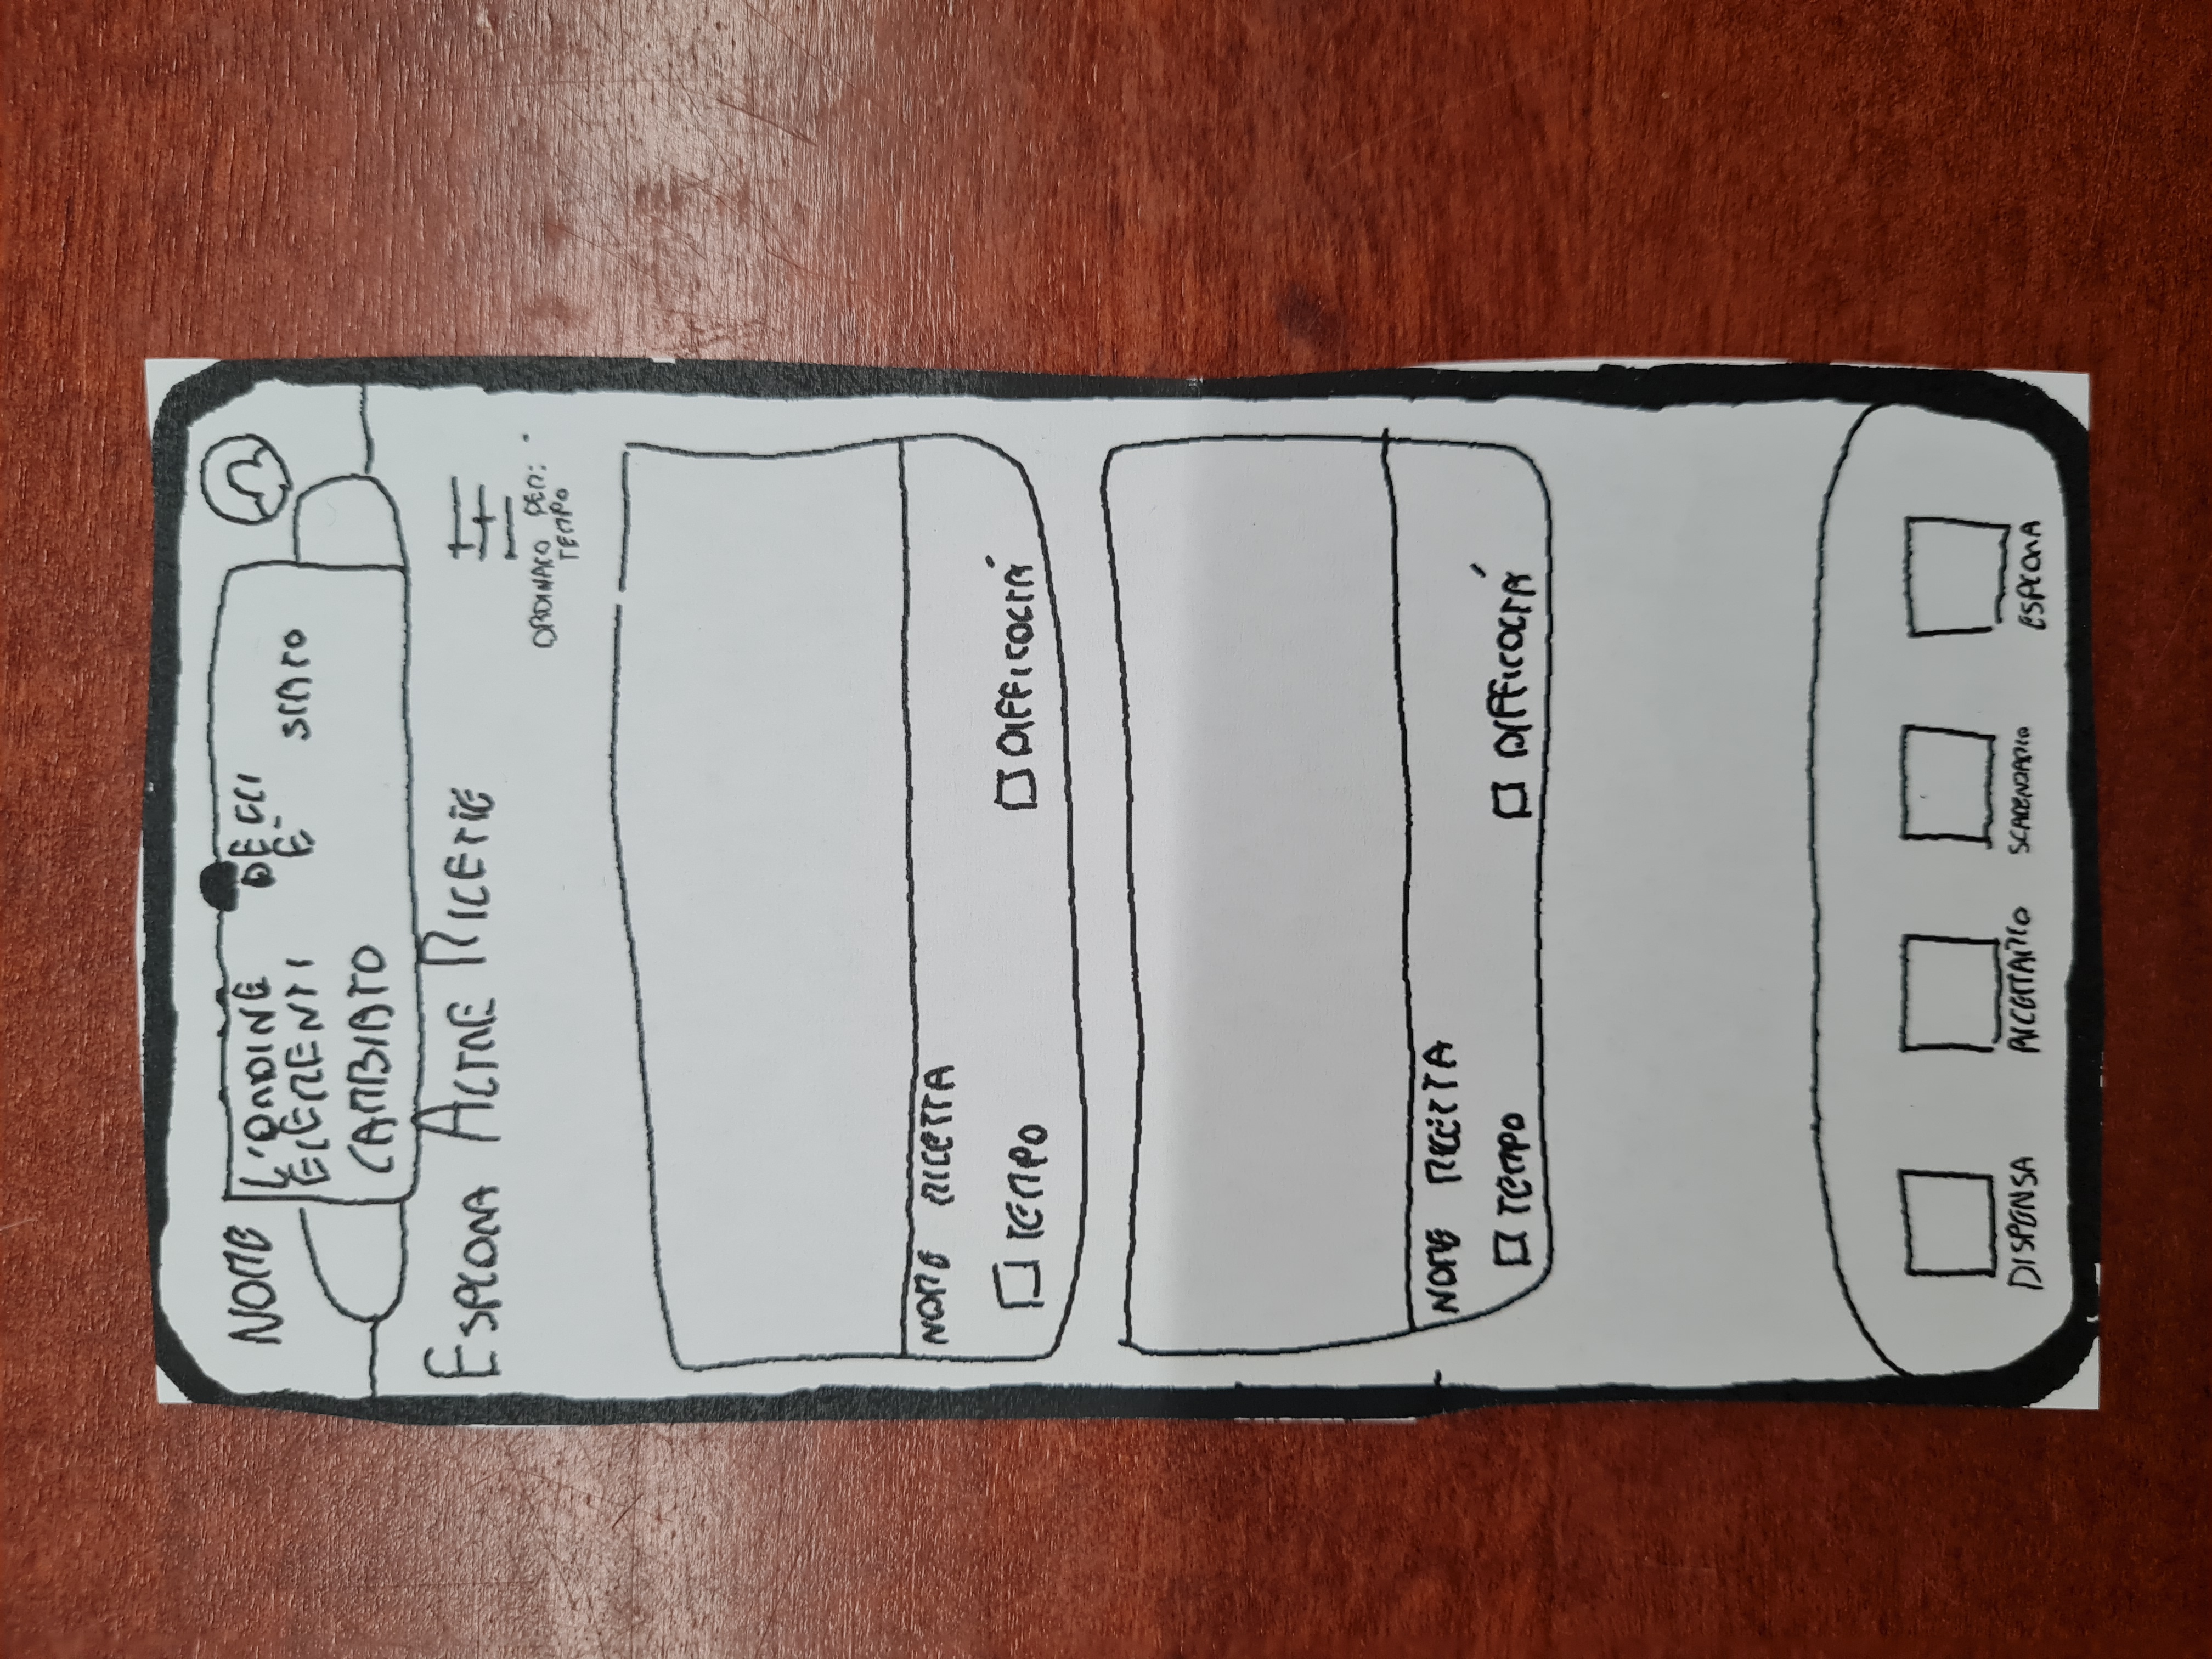 NOME
L'ORDINE DEGLI
ELEMENTI È STATO
CAMBIATO
ESPLORA ALTRE RICETTE
ORDINATO PER:
TEMPO
NOME RICETTA
TEMPO DIFFICOLTÁ
NOME RICETTA
TEMPO DIFFICOLTÁ
DISPENSA RICETTARIO SCADENZARIO ESPLORA